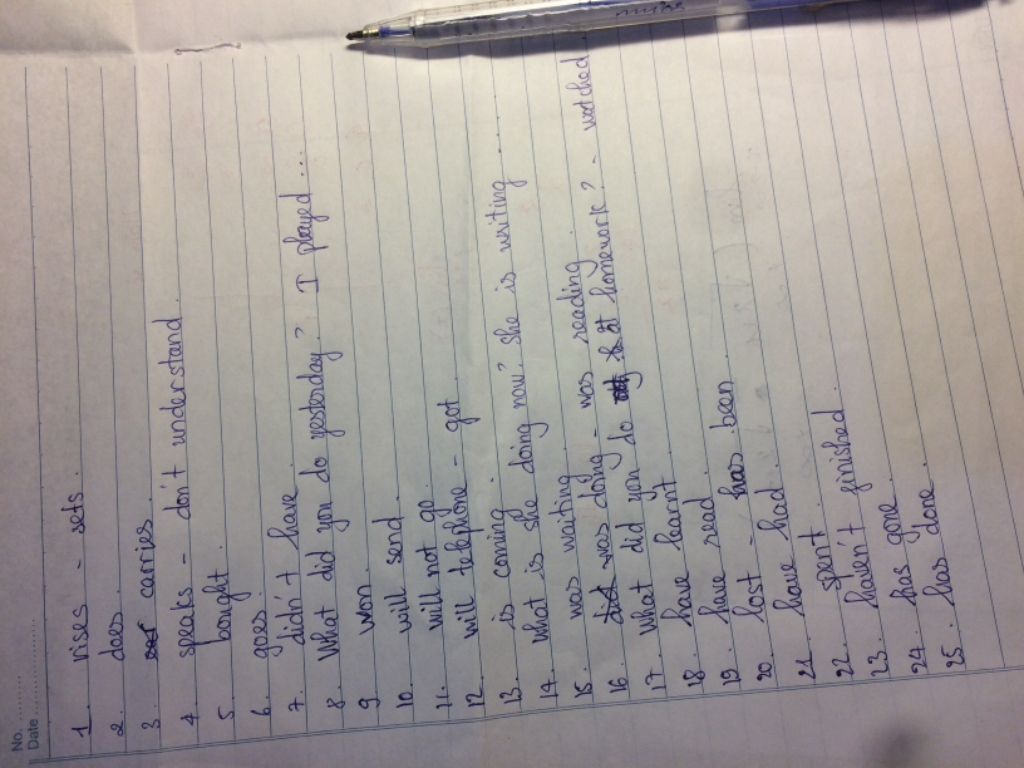 No. ..........
Date ..................
1. rises - sets
2. does.
3. carries
4. speaks - don't understand.
5. bought.
6. goes.
7. didn't have.
8. What did you do yesterday? I played ...
9. won.
10. will send.
11. will not go.
12. will telephone - got.
13. is coming.
14. What is she doing now? she is writing ...
15. was waiting.
16. did was doing - was reading.
17. What did you do at homework? - watched
18. have learnt
19. have read.
20. lost - has been
21. have had.
22. spent.
23. haven't finished.
24. has gone.
25. has done.